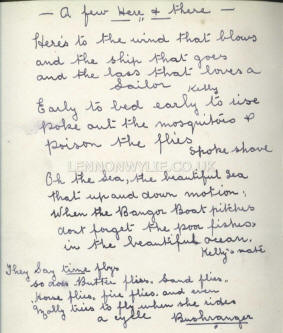 — A few Here & there —
Here's to the wind that blows
and the ship that goes
and the lass that loves a
Sailor
Kelly
Early to bed early to rise
poke out the mosquitoes &
poison the flies
Spoke shave
LENNONWYLIE.CO.UK
Oh the Sea, the beautiful Sea
that up and down motion;
When the Bangor Boat pitches
dont forget the poor fishes
in the beautiful ocean.
Kelly's mate
They Say time flys
so does Butter flies, Sand flies,
Horse flies, fire flies, and even
Molly tries to fly when she rides
a cycle Bushranger